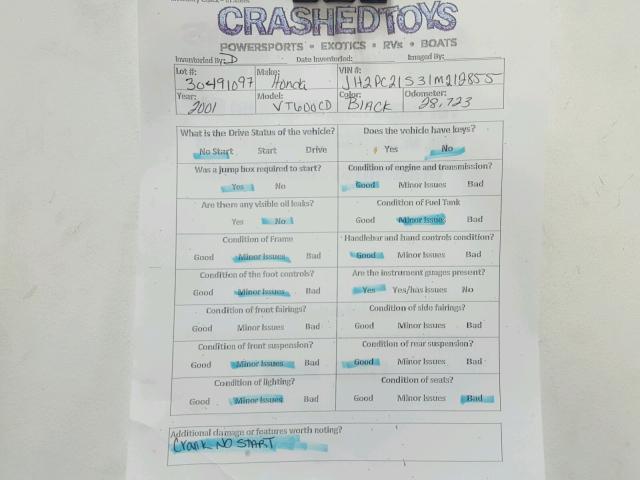 CRASHEDTOYS
POWERSPORTS • EXOTICS • RVs • BOATS
Inventoried By: D Date Inventoried: Imaged By:
Lot #: 30491097 Make: Honda VIN #: JH2PC21531M212855
Year: 2001 Model: VT600CD Color: Black Odometer: 28,723
What is the Drive Status of the vehicle? Does the vehicle have keys?
No Start Start Drive Yes No
Was a jump box required to start? Condition of engine and transmission?
Yes No Good Minor Issues Bad
Are there any visible oil leaks? Condition of Fuel Tank
Yes No Good Minor Issue Bad
Condition of Frame Handlebar and hand controls condition?
Good Minor Issues Bad Good Minor Issues Bad
Condition of the foot controls? Are the instrument guages present?
Good Minor Issues Bad Yes Yes/has issues No
Condition of front fairings? Condition of side fairings?
Good Minor Issues Bad Good Minor Issues Bad
Condition of front suspension? Condition of rear suspension?
Good Minor Issues Bad Good Minor Issues Bad
Condition of lighting? Condition of seats?
Good Minor Issues Bad Good Minor Issues Bad
Additional damage or features worth noting?
Crank NO START